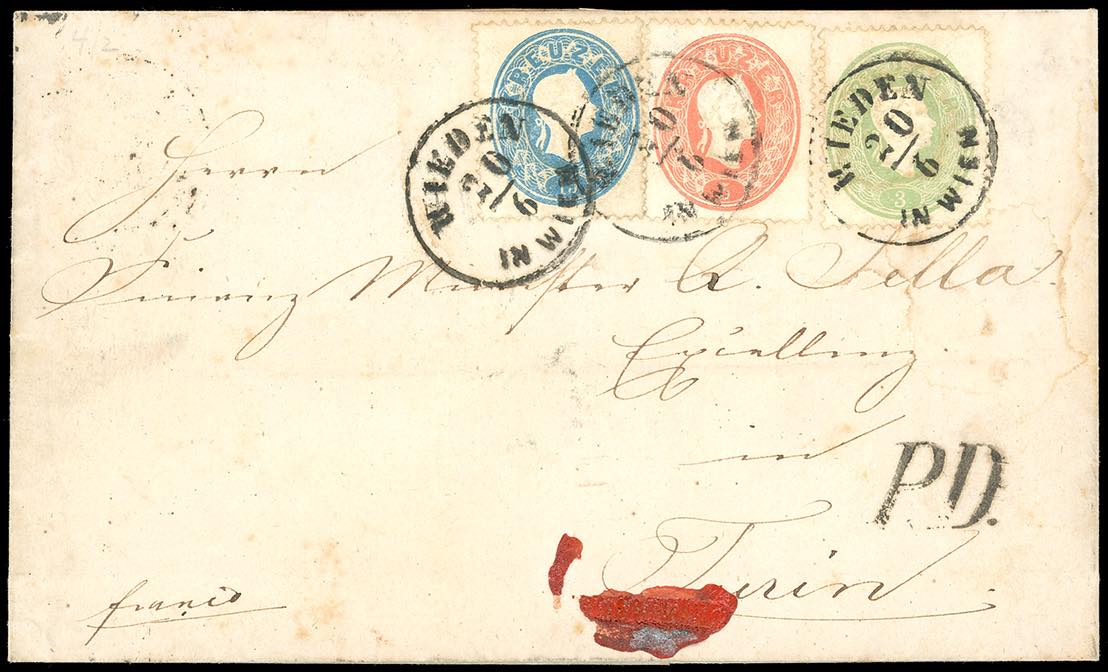 42
KREUZER
15
KREUZER
5
KREUZER
3
WIEDEN
20/6
IN WIEN
WIEDEN
20/6
IN WIEN
WIEDEN
20/6
IN WIEN
Herrn
Finanz Minister Q. Sella
Excellenz
in
P.D.
Turin
franco